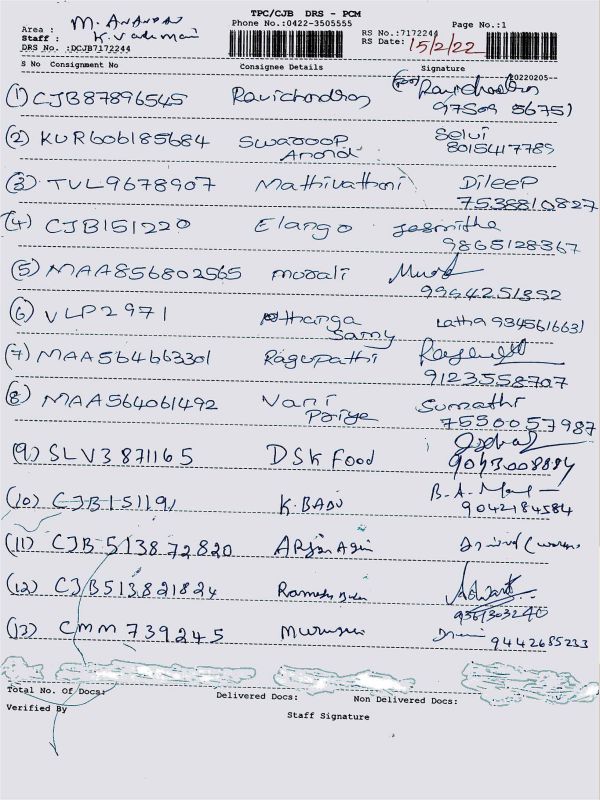 TPC/CJB DRS - PCM
Phone No.:0422-3505555 Page No.:1
Area : M. ANANDAN
Staff : K. Vadamani
DRS No. :DCJB7172244
RS No.:7172244
RS Date: 15/2/22
20220205--
S No Consignment No Consignee Details Signature
(1) CJB87896545 Ravichandran Ravichandran
97509 56751
(2) KUR606185684 Swaroop Anand Selvi
8015417789
(3) TVL9678907 Mathivathani Dileep
7538810827
(4) CJB151220 Elango Jasmitha
9865128367
(5) MAA856802565 murali Murali
9994251392
(6) VLP2971 thanga Samy Latha 9345616631
(7) MAA564663301 Ragupathi
9123558707
(8) MAA564061492 Vani Priya Sumathi
7550057987
(9) SLV3871165 DSK Food
9043008884
(10) CJB151191 K. BABU B.A.
9042184584
(11) CJB 513872820
(12) CJB513821824 Ramesh
9361303240
(13) CMM 739245 Murugan
9442685233
Total No. Of Docs: Delivered Docs: Non Delivered Docs:
Verified By
Staff Signature